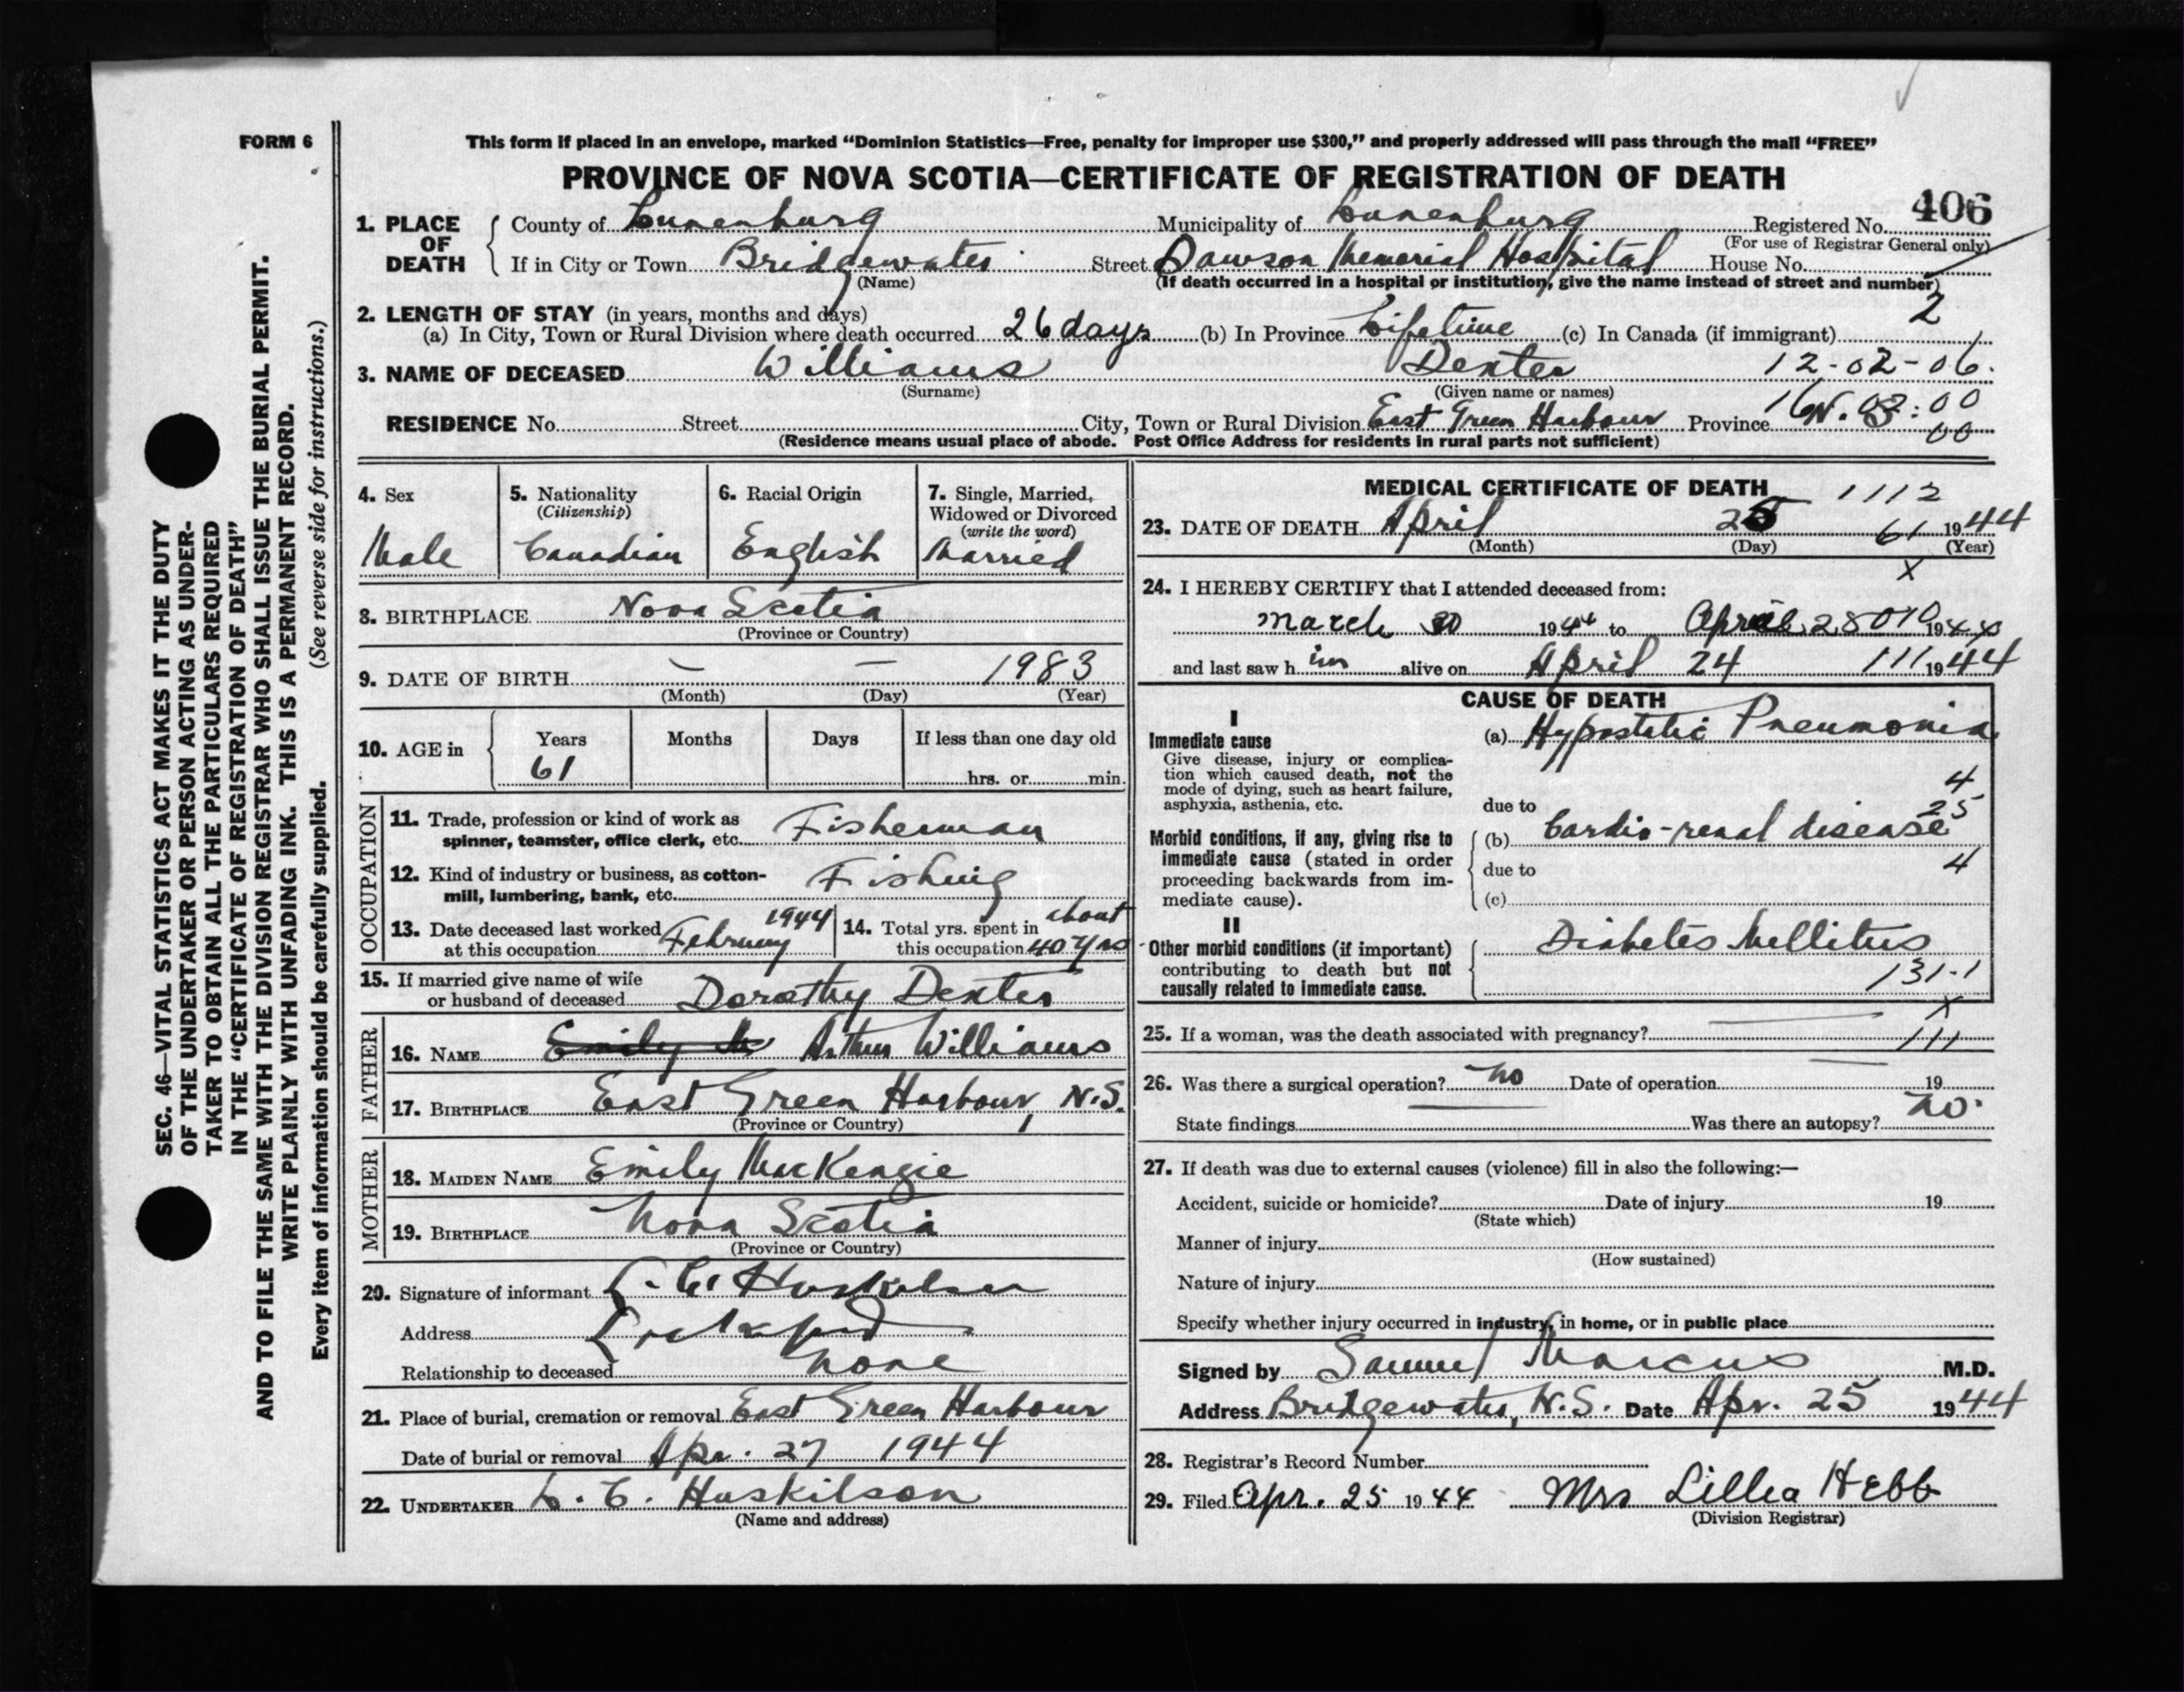 FORM 6
This form if placed in an envelope, marked “Dominion Statistics—Free, penalty for improper use $300,” and properly addressed will pass through the mail “FREE”
PROVINCE OF NOVA SCOTIA—CERTIFICATE OF REGISTRATION OF DEATH
406
1. PLACE OF DEATH County of Lunenburg Municipality of Lunenburg Registered No.
(For use of Registrar General only)
If in City or Town Bridgewater Street Dawson Memorial Hospital House No.
(Name) (If death occurred in a hospital or institution, give the name instead of street and number)
2. LENGTH OF STAY (in years, months and days) 2
(a) In City, Town or Rural Division where death occurred 26 days (b) In Province Lifetime (c) In Canada (if immigrant)
3. NAME OF DECEASED Williams Dexter 12-02-06.
(Surname) (Given name or names)
RESIDENCE No. Street City, Town or Rural Division East Green Harbour Province N.S.
00
(Residence means usual place of abode. Post Office Address for residents in rural parts not sufficient)
4. Sex
Male
5. Nationality
(Citizenship)
Canadian
6. Racial Origin
English
7. Single, Married,
Widowed or Divorced
(write the word)
Married
8. BIRTHPLACE Nova Scotia
(Province or Country)
9. DATE OF BIRTH — — 1983
(Month) (Day) (Year)
10. AGE in Years Months Days If less than one day old
61 hrs. or min.
OCCUPATION
11. Trade, profession or kind of work as
spinner, teamster, office clerk, etc. Fisherman
12. Kind of industry or business, as cotton-
mill, lumbering, bank, etc. Fishing
13. Date deceased last worked
at this occupation February 1944
14. Total yrs. spent in
this occupation about 40 yrs
15. If married give name of wife
or husband of deceased Dorothy Dexter
FATHER
16. NAME Emily M Arthur Williams
17. BIRTHPLACE East Green Harbour, N.S.
(Province or Country)
MOTHER
18. MAIDEN NAME Emily MacKenzie
19. BIRTHPLACE Nova Scotia
(Province or Country)
20. Signature of informant L. C. Huskilson
Address Lockeport
Relationship to deceased None
21. Place of burial, cremation or removal East Green Harbour
Date of burial or removal Apr. 27 1944
22. UNDERTAKER L. C. Huskilson
(Name and address)
MEDICAL CERTIFICATE OF DEATH 1112
23. DATE OF DEATH April 25 61 1944
(Month) (Day) (Year)
X
24. I HEREBY CERTIFY that I attended deceased from:
March 30 1944 to April 28 010 1944
and last saw him alive on April 24 111 1944
CAUSE OF DEATH
I
Immediate cause
Give disease, injury or complica-
tion which caused death, not the
mode of dying, such as heart failure,
asphyxia, asthenia, etc.
(a) Hypostatic Pneumonia
4
due to 25
Morbid conditions, if any, giving rise to
immediate cause (stated in order
proceeding backwards from im-
mediate cause).
(b) Cardio-renal disease
due to 4
(c)
II
Other morbid conditions (if important)
contributing to death but not
causally related to immediate cause.
Diabetes Mellitus
131-1
X
25. If a woman, was the death associated with pregnancy? 111
26. Was there a surgical operation? No Date of operation 19
State findings Was there an autopsy? No.
27. If death was due to external causes (violence) fill in also the following:—
Accident, suicide or homicide? Date of injury 19
(State which)
Manner of injury
(How sustained)
Nature of injury
Specify whether injury occurred in industry, in home, or in public place
Signed by Samuel Marcus M.D.
Address Bridgewater, N.S. Date Apr. 25 1944
28. Registrar's Record Number
29. Filed Apr. 25 1944 Mrs Lillia Hebb
(Division Registrar)
SEC. 46—VITAL STATISTICS ACT MAKES IT THE DUTY
OF THE UNDERTAKER OR PERSON ACTING AS UNDER-
TAKER TO OBTAIN ALL THE PARTICULARS REQUIRED
IN THE “CERTIFICATE OF REGISTRATION OF DEATH”
AND TO FILE THE SAME WITH THE DIVISION REGISTRAR WHO SHALL ISSUE THE BURIAL PERMIT.
WRITE PLAINLY WITH UNFADING INK. THIS IS A PERMANENT RECORD.
Every item of information should be carefully supplied. (See reverse side for instructions.)